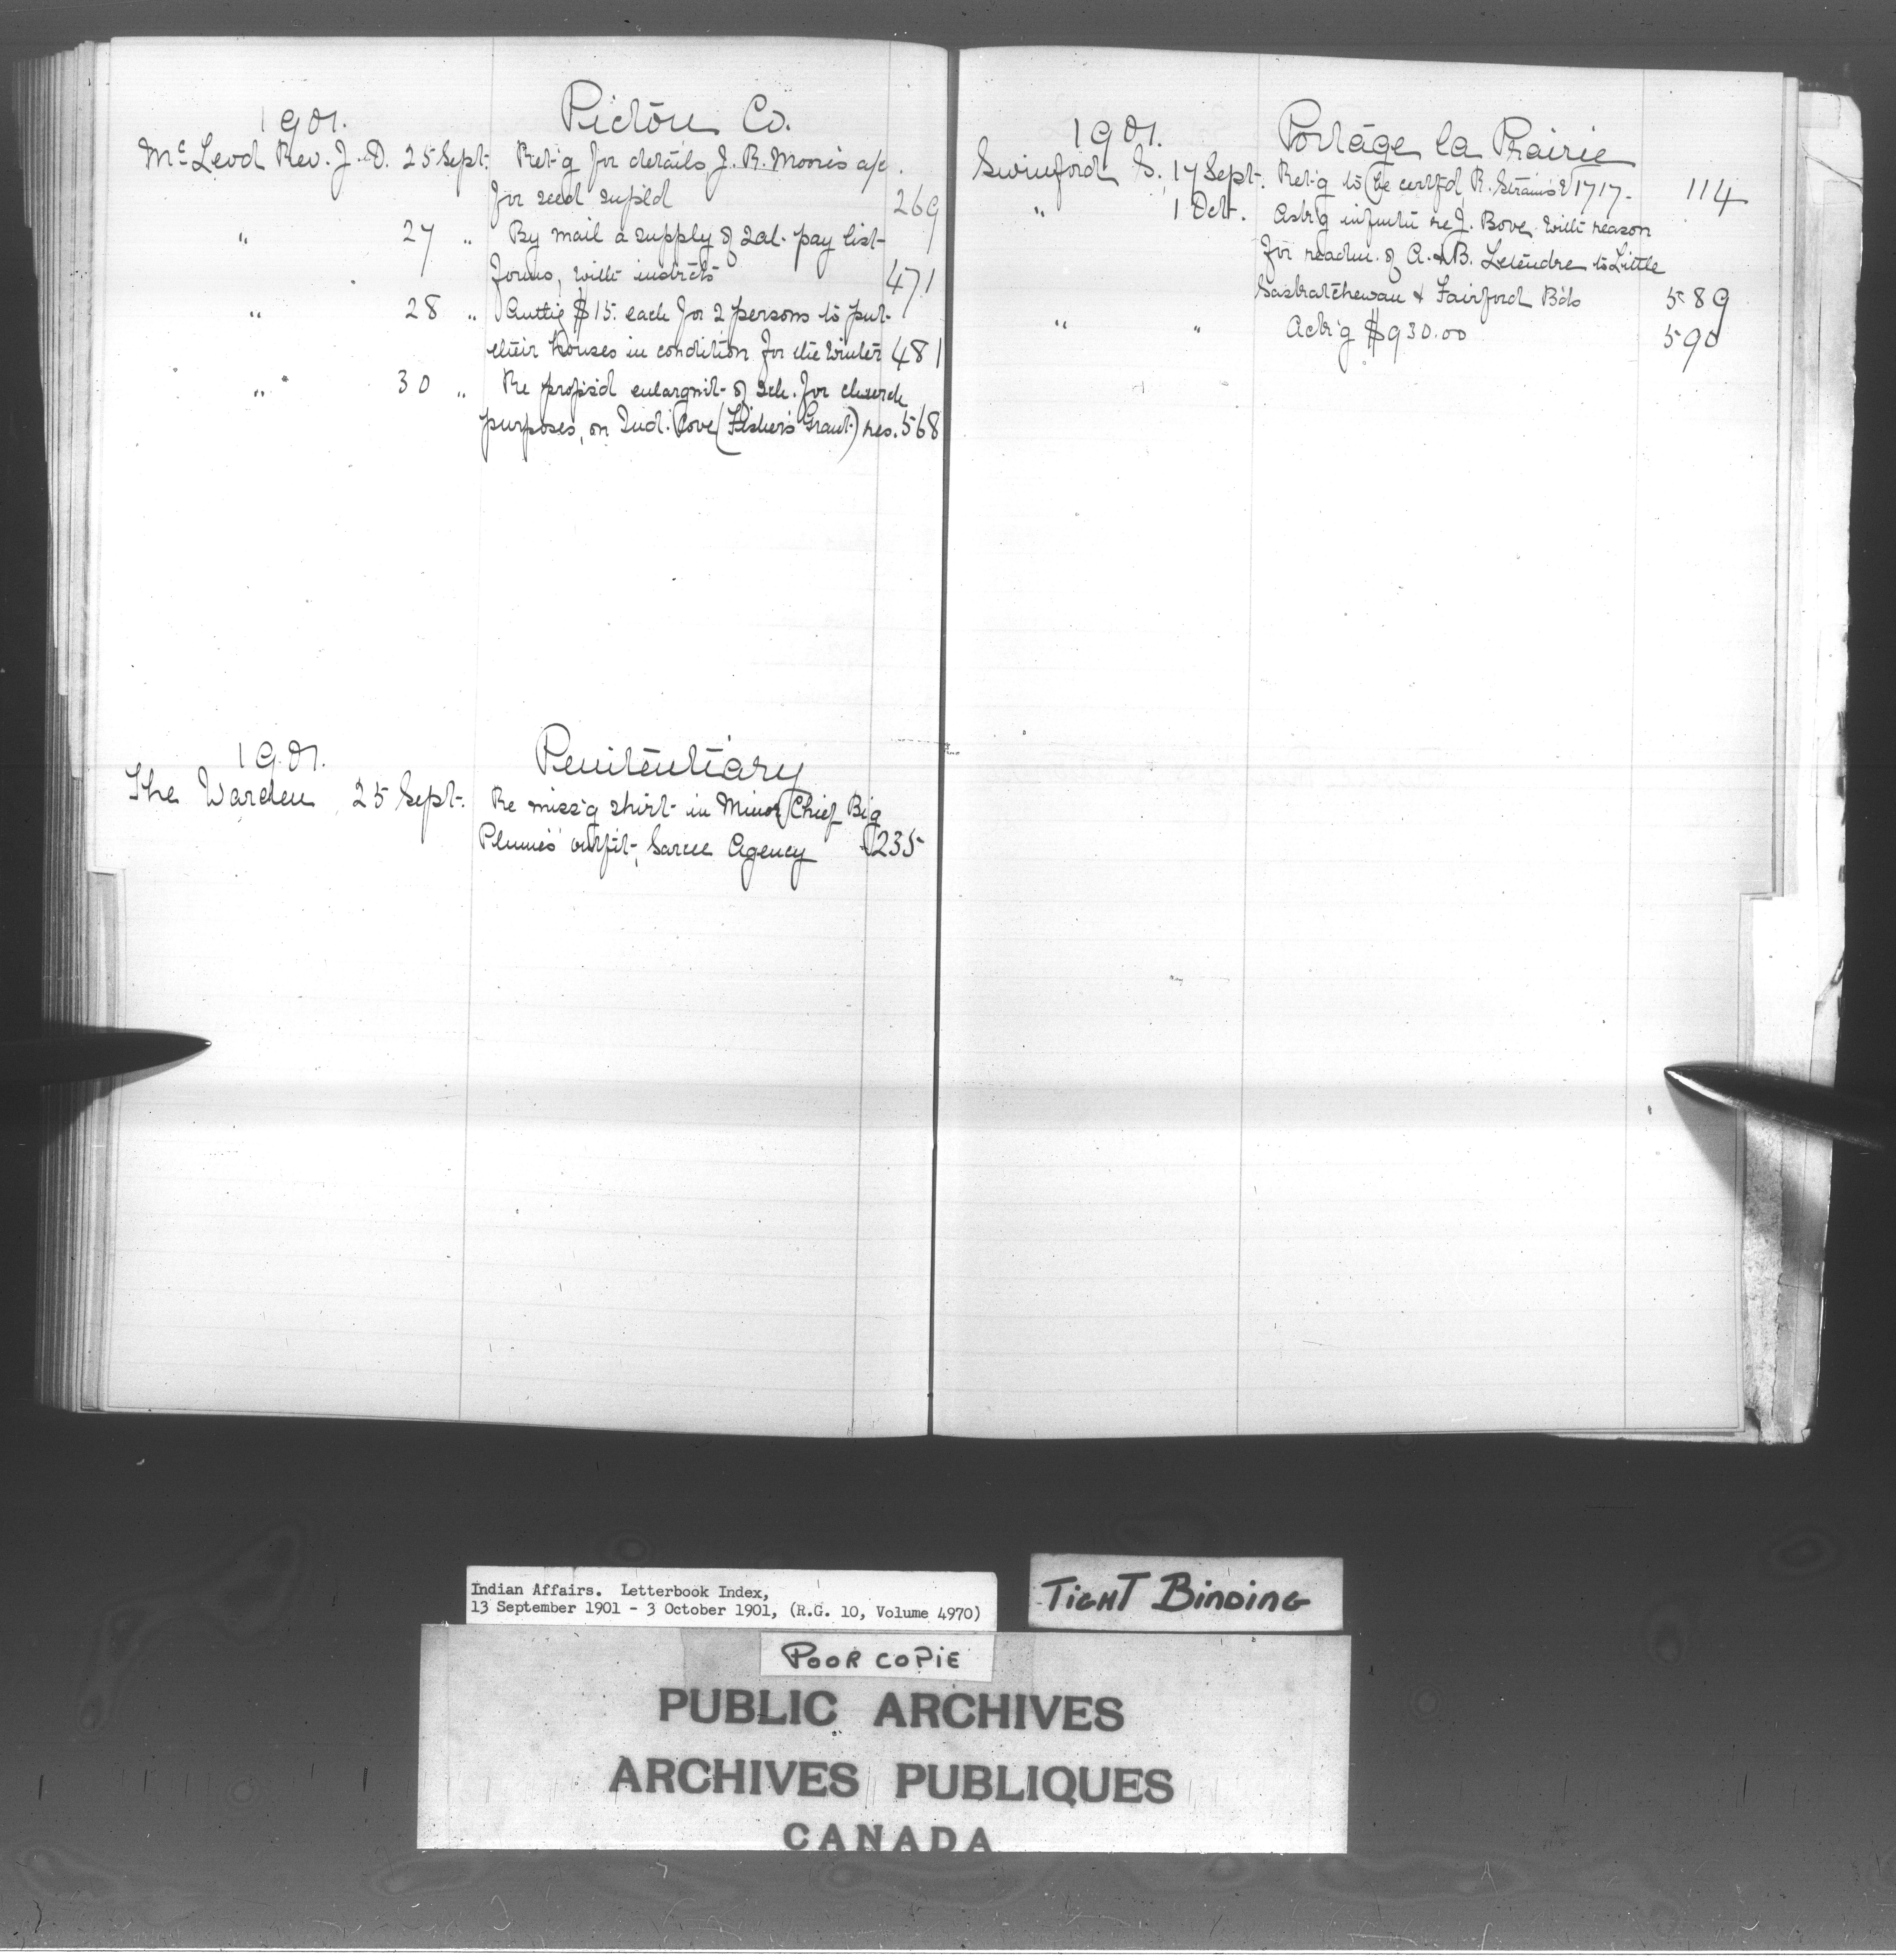 1901. Pictou Co.
McLeod Rev. J. D. 25 Sept. Ret'g for details, J. R. Moore's a/c.
for seed supl'd 269
" 27 " By mail a supply of sal. pay list
forms, with instrcts 471
" 28 " Auttig $15. each for 2 persons to put
their houses in condition for the winter 481
" 30 " Re props'd enlargmt. of sch. for church
purposes, on Ind. Cove (Fisher's Grant) res. 568
1901. Penitentiary
The Warden 25 Sept. Re miss'g shirt in Minor Chief Big
Plume's outfit, Sarcee Agency 235
1901. Portage la Prairie
Swinford S. 17 Sept. Ret'g to be certf'd R. 1717. 114
" 1 Oct. Ask'g infmtn re J. Bove with reason
for readm. of A. & B. Letendre to Little
Saskatchewan & Fairford Bds 589
" " Ack'g $930.00 590
Indian Affairs. Letterbook Index,
13 September 1901 - 3 October 1901, (R.G. 10, Volume 4970)
TIGHT BINDING
POOR COPIE
PUBLIC ARCHIVES
ARCHIVES PUBLIQUES
CANADA